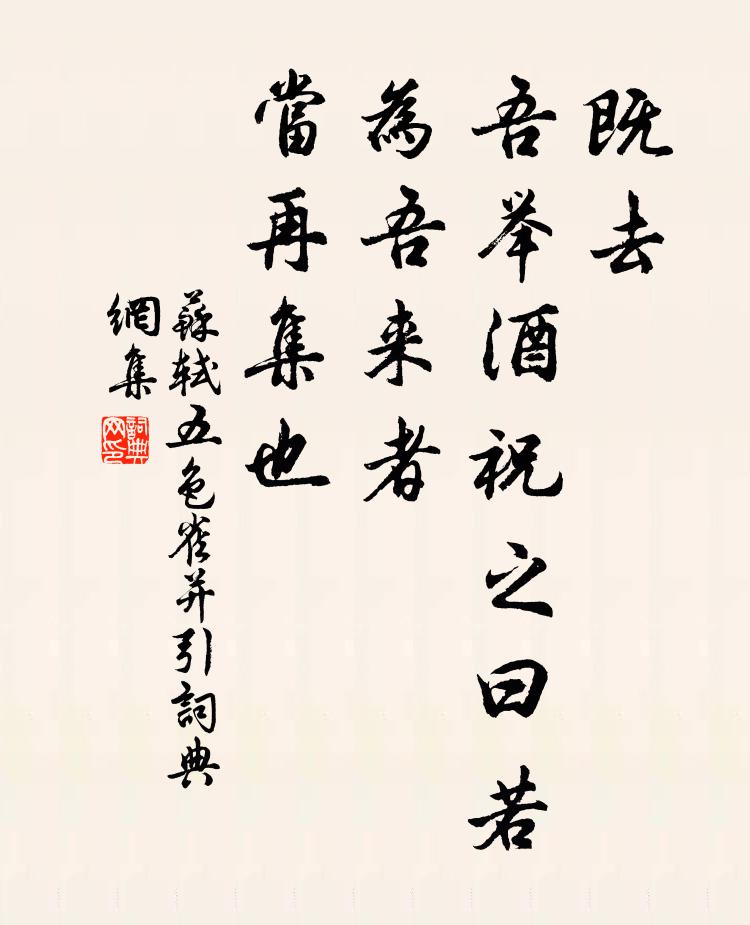 既去
吾举酒祝之曰若
為吾来者
當再集也
蘇軾五色雀并引詞典
網集
詞典
网印